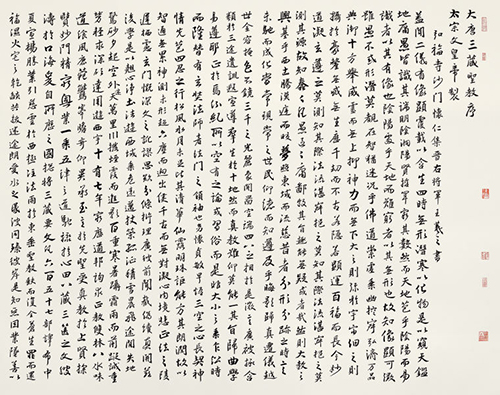 大唐三藏聖教序
太宗文皇帝製
弘福寺沙門懷仁集晉右將軍王羲之書
蓋聞二儀有像顯覆載以含生四時無形潛寒暑以化物是以窺天鑑
地庸愚皆識其端明陰洞陽賢哲罕窮其數然而天地苞乎陰陽而易
識者以其有像也陰陽處乎天地而難窮者以其無形也故知像顯可徵
雖愚不惑形潛莫覩在智猶迷況乎佛道崇虛乘幽控寂弘濟萬品
典御十方舉威靈而無上抑神力而無下大之則彌於宇宙細之則
攝於豪釐無滅無生歷千劫而不古若隱若顯運百福而長今妙
道凝玄遵之莫知其際法流湛寂挹之莫
測其源故知蠢蠢凡愚區區庸鄙投其旨趣能無疑惑者哉然則大教之
興基乎西土騰漢庭而皎夢照東域而流慈昔者分形分跡之時言
未馳而成化當常現常之世民仰德而知遵及乎晦影歸真遷儀越
世金容掩色不鏡三千之光麗象開圖空端四八之相於是微言廣被拯含
類於三途遺訓遐宣導群生於十地然而真教難仰莫能一其旨歸曲學
易遵邪正於焉紛糾所以空有之論或習俗而是非大小之乘乍沿時
而隆替有玄奘法師者法門之領袖也幼懷貞敏早悟三空之心長契神
情先苞四忍之行松風水月未足比其清華仙露明珠詎能方其朗潤故以
智通無累神測未形超六塵而迥出隻千古而無對凝心內境悲正法之陵
遲栖慮玄門慨深文之訛謬思欲分條析理廣彼前聞截偽續真開茲
後學是以翹心淨土往遊西域乘危遠邁杖策孤征積雪晨飛途間失地
驚砂夕起空外迷天萬里山川撥煙霞而進影百重寒暑躡霜雨而前蹤誠重
勞輕求深願達周遊西宇十有七年窮歷道邦詢求正教雙林八水味
道餐風鹿菀鷲峰瞻奇仰異承至言於先聖受真教於上賢探
賾妙門精窮奧業一乘五律之道馳驟於心田八藏三篋之文波
濤於口海爰自所歷之國總將三藏要文凡六百五十七部譯布中
夏宣揚勝業引慈雲於西極注法雨於東垂聖教缺而復全蒼生罪而還
福濕火宅之乾焰共拔迷途朗愛水之昏波同臻彼岸是知惡因業墜善以